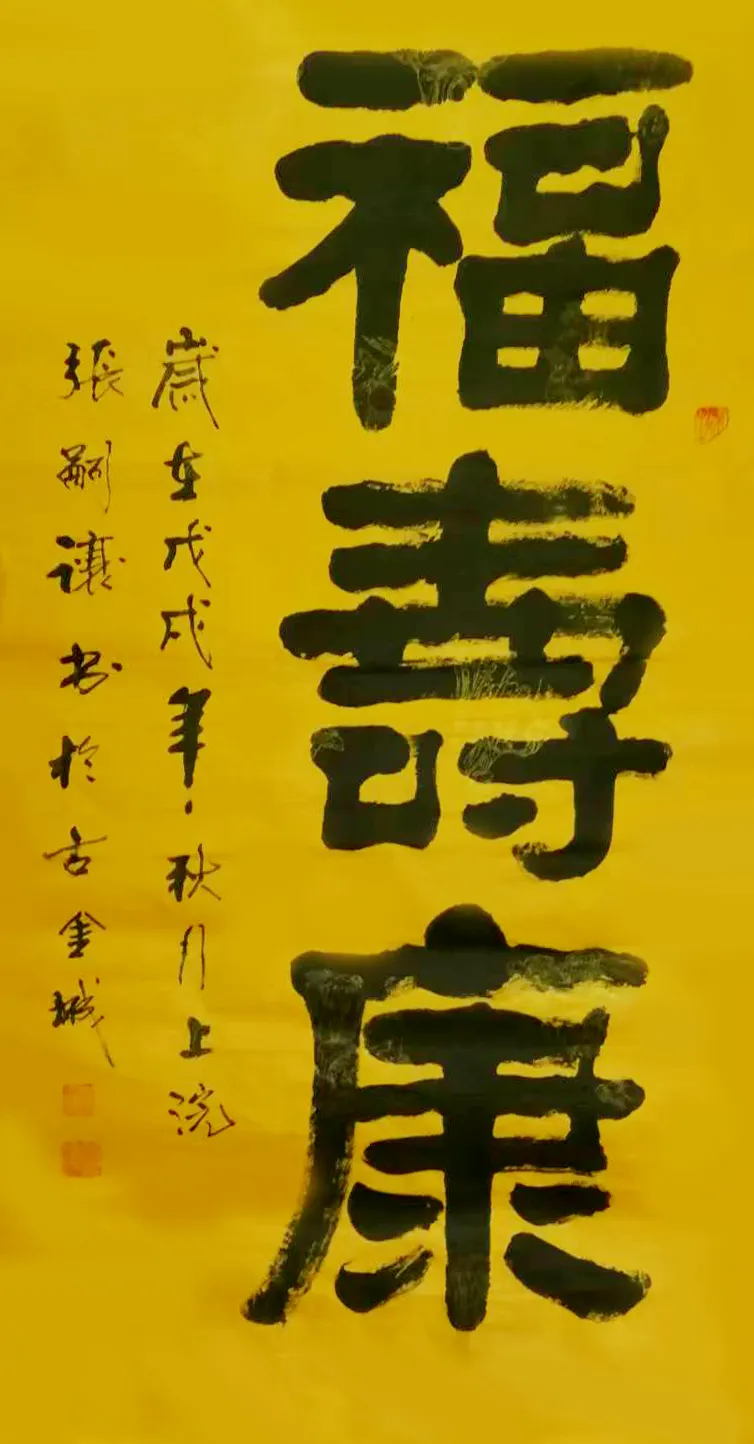 福壽康
歲在戊戌年秋月上浣
張嗣讓书於古金城